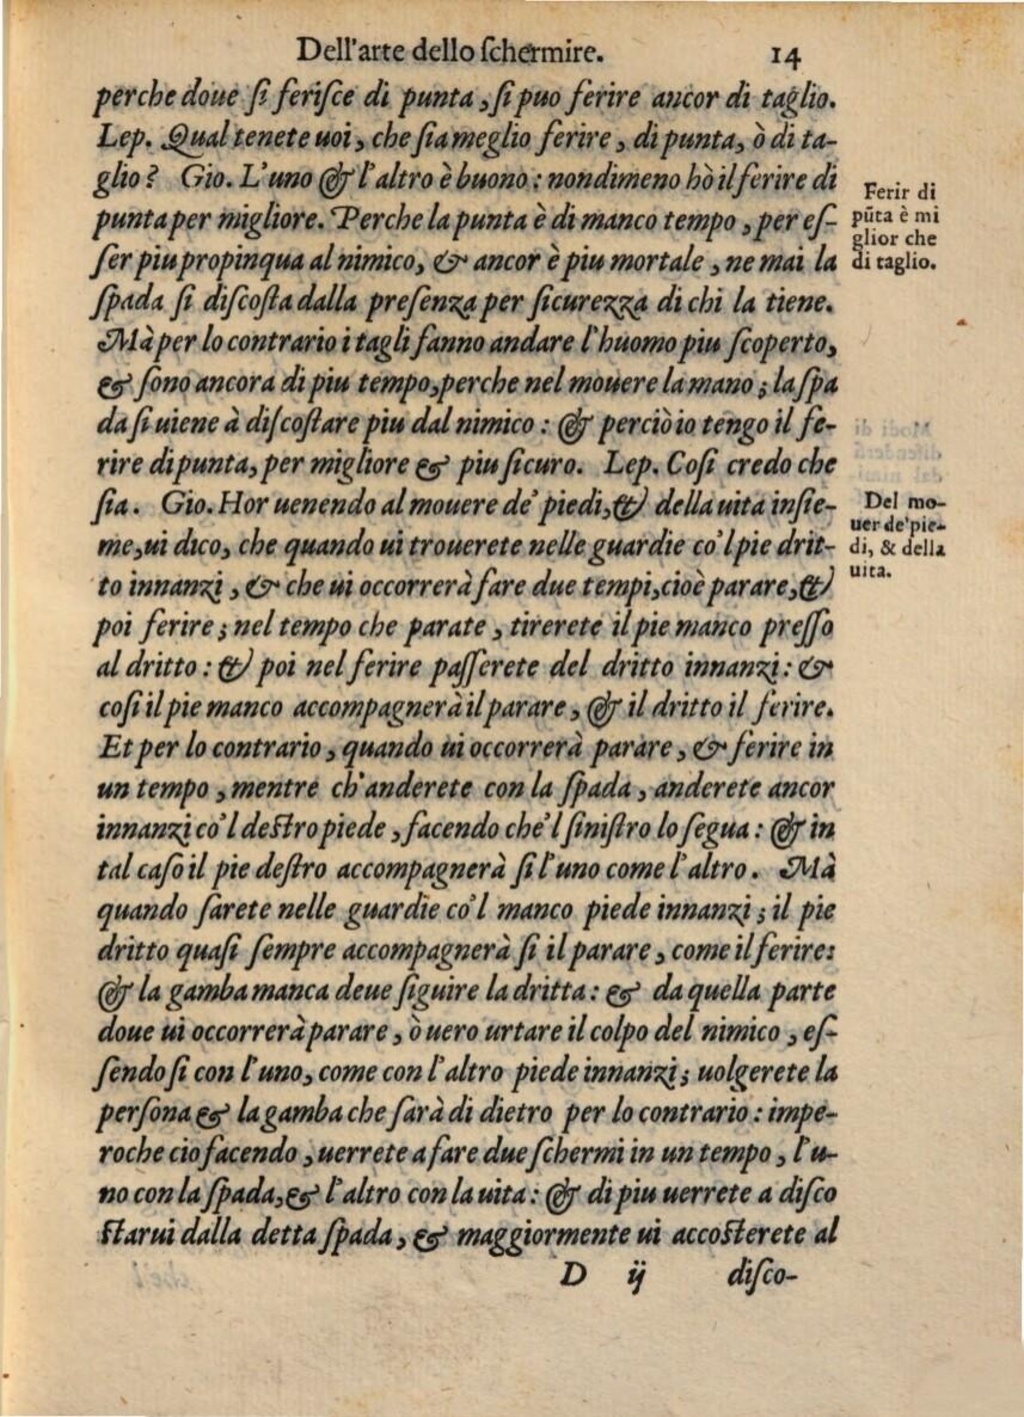 Dell'arte dello ſchermire. 14
perche doue ſi feriſce di punta, ſi puo ferire ancor di taglio.
Lep. Qual tenete uoi, che ſia meglio ferire, di punta, ò di ta-
glio? Gio. L'uno & l'altro è buono: nondimeno hò il ferire di
punta per migliore. Perche la punta è di manco tempo, per eſ-
ſer piu propinqua al nimico, & ancor è piu mortale, ne mai la
ſpada ſi diſcoſta dalla preſenza per ſicurezza di chi la tiene.
Mà per lo contrario i tagli fanno andare l'huomo piu ſcoperto,
& ſono ancora di piu tempo, perche nel mouere la mano; la ſpa
da ſi uiene à diſcoſtare piu dal nimico: & perciò io tengo il fe-
rire di punta, per migliore & piu ſicuro. Lep. Coſi credo che
ſia. Gio. Hor uenendo al mouere de' piedi, & della uita inſie-
me, ui dico, che quando ui trouerete nelle guardie co'l pie drit-
to innanzi, & che ui occorrerà fare due tempi, cioè parare, &
poi ferire; nel tempo che parate, tirerete il pie manco preſſo
al dritto: & poi nel ferire paſſerete del dritto innanzi: &
coſi il pie manco accompagnerà il parare, & il dritto il ferire.
Et per lo contrario, quando ui occorrerà parare, & ferire in
un tempo, mentre ch'anderete con la ſpada, anderete ancor
innanzi co'l deſtro piede, facendo che'l ſiniſtro lo ſegua: & in
tal caſo il pie deſtro accompagnerà ſi l'uno come l'altro. Mà
quando ſarete nelle guardie co'l manco piede innanzi; il pie
dritto quaſi ſempre accompagnerà ſi il parare, come il ferire:
& la gamba manca deue ſiguire la dritta: & da quella parte
doue ui occorrerà parare, ò uero urtare il colpo del nimico, eſ-
ſendo ſi con l'uno, come con l'altro piede innanzi; uolgerete la
perſona & la gamba che ſarà di dietro per lo contrario: impe-
roche cio facendo, uerrete a fare due ſchermi in un tempo, l'u-
no con la ſpada, & l'altro con la uita: & di piu uerrete a diſco
ſtarui dalla detta ſpada, & maggiormente ui accoſterete al
D ij diſco-
Ferir di
pūta è mi
glior che
di taglio.
Del mo-
uer de'pie-
di, & della
uita.